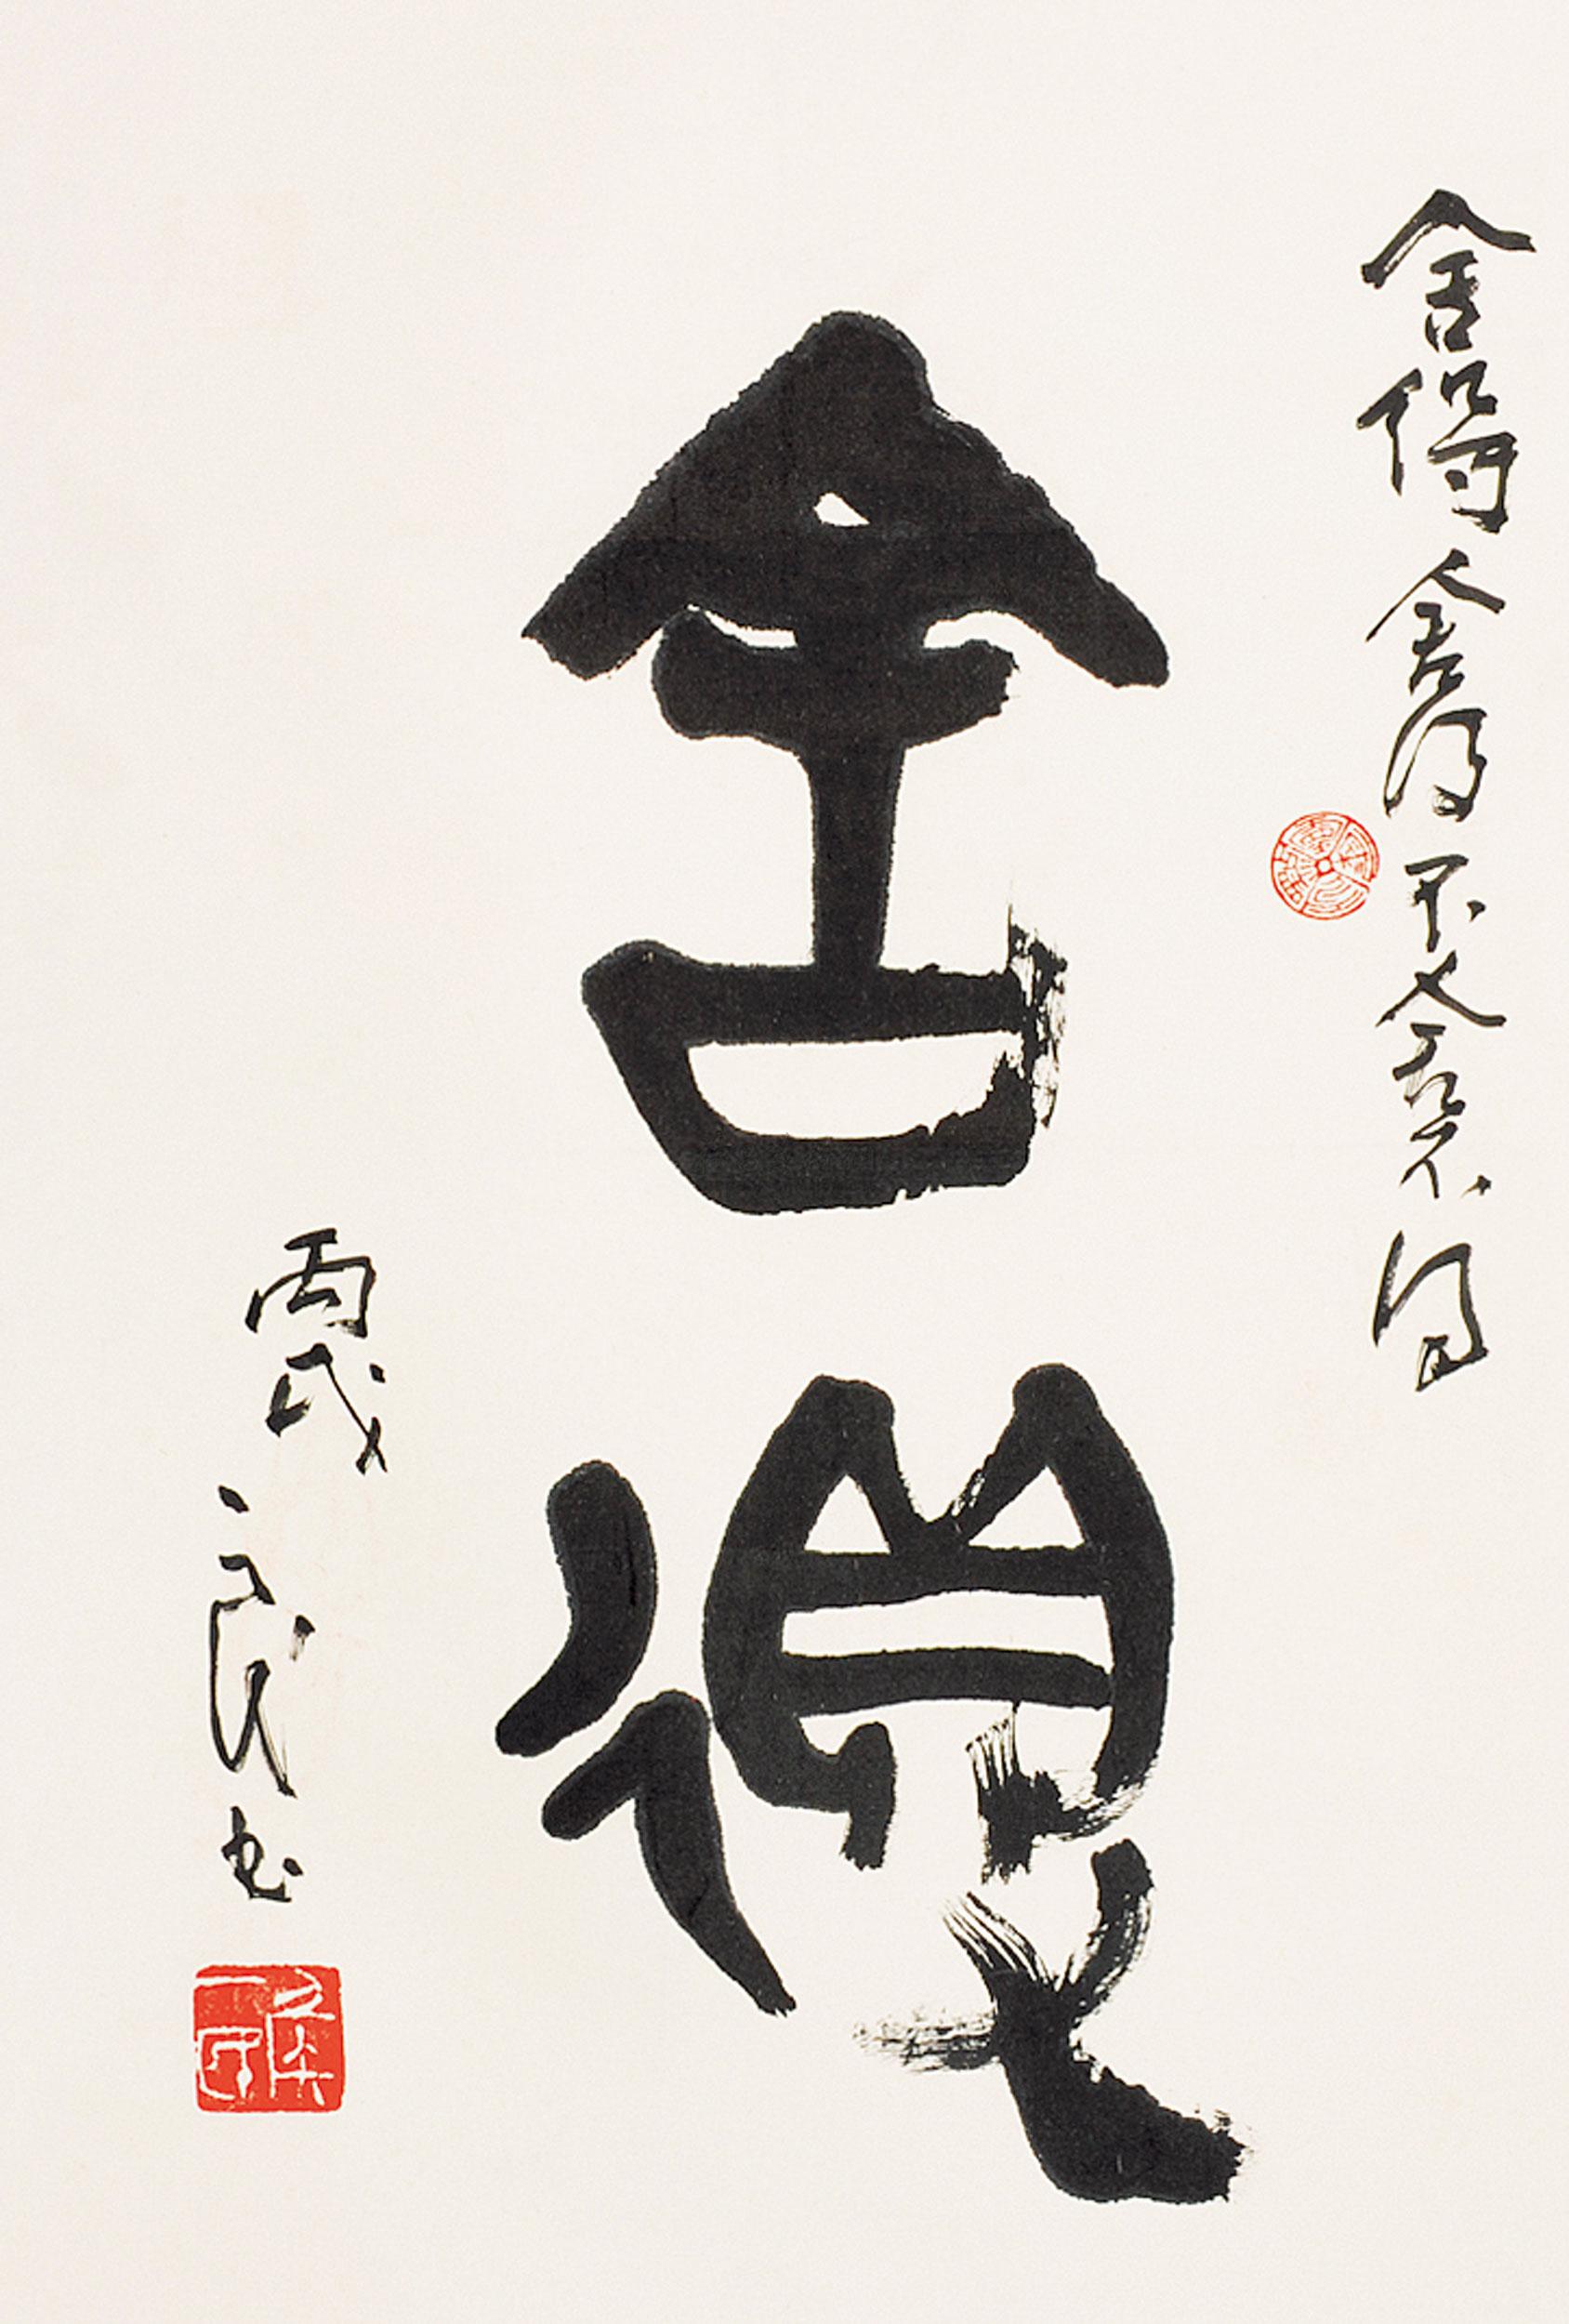 舍得舍得不舍不得
舍得
丙戌
书